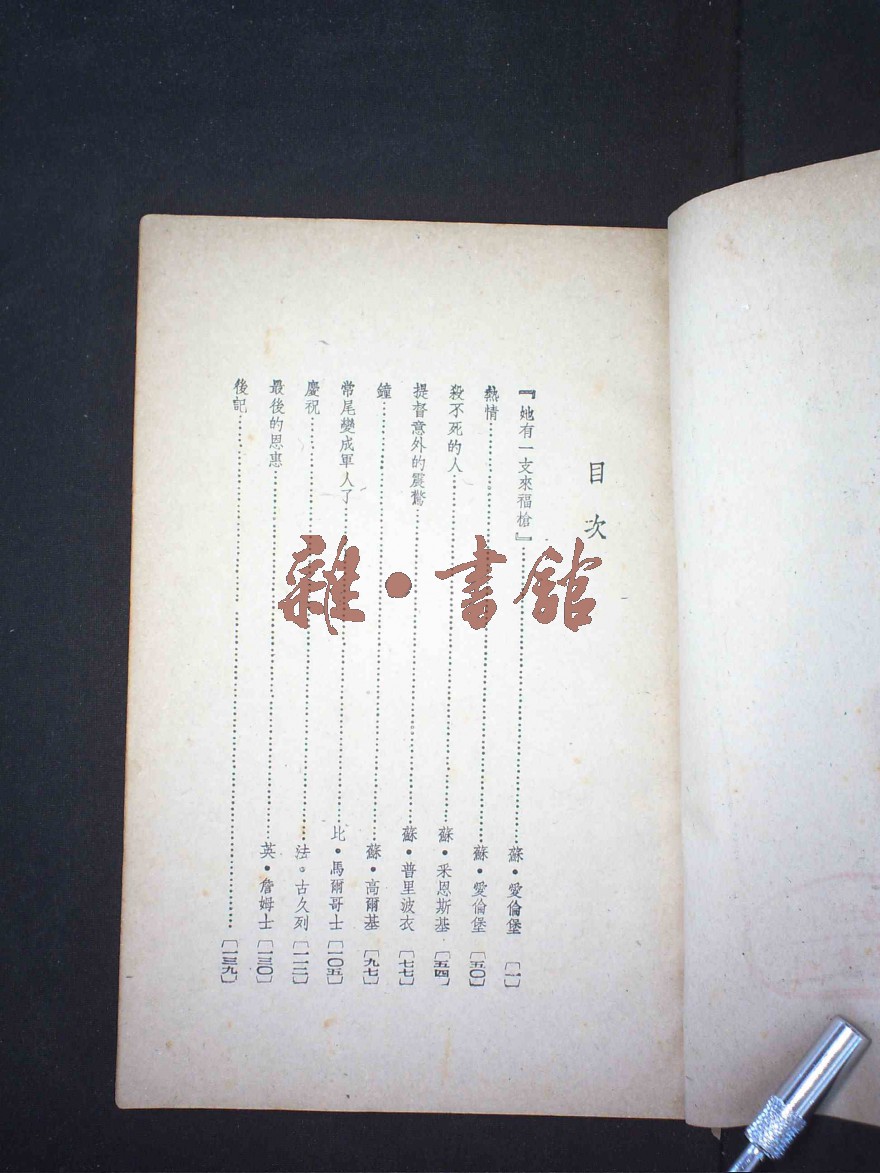 目次
『她有一支來福槍』……蘇•愛倫堡 〔一〕
熱情……蘇•愛倫堡 〔五〇〕
殺不死的人……蘇•釆恩斯基 〔五四〕
提督意外的震驚……蘇•普里波衣 〔七七〕
鐘……蘇•高爾基 〔九七〕
常尾變成軍人了……比•馬爾哥士 〔一〇五〕
慶祝……法。古久列 〔一一二〕
最後的恩惠……英•詹姆士 〔一三〇〕
後記……〔一三九〕
雜•書館